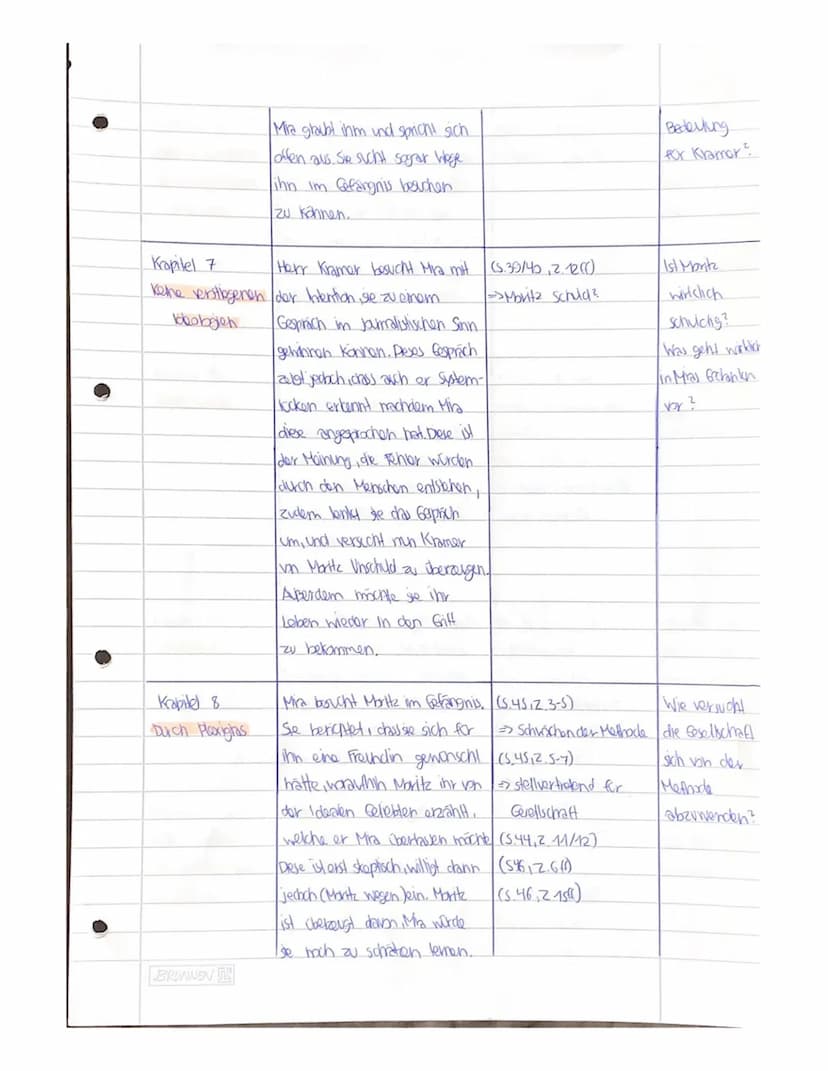 Mira glaubt ihm und spricht sich
offen aus. Sie sucht sogar Wege
ihn im Gefängnis besuchen
zu können.
Bedeutung
für Kramer?
Kapitel 7
Keine verstiegenen
Ideologien
Herr Kramer besucht Mira mit
der Intention, sie zu einem
Gespräch im journalistischen Sinn
gewinnen können. Dieses Gespräch
zeigt jedoch, dass auch er System-
lücken erkennt nachdem Mira
diese angesprochen hat. Diese ist
der Meinung, die Fehler würden
durch den Menschen entstehen,
zudem lenkt sie das Gespräch
um, und versucht nun Kramer
von Moritz Unschuld zu überzeugen.
Außerdem möchte sie ihr
Leben wieder in den Griff
zu bekommen.
(S.39/40, Z.12ff)
=> Moritz schuld?
Ist Moritz
wirklich
schuldig?
Was geht wirklich
in Miras Gedanken
vor?
Kapitel 8
Durch Plexiglas
Mira besucht Moritz im Gefängnis.
Sie berichtet, dass sie sich für
ihn eine Freundin gewünscht
hätte, woraufhin Moritz ihr von
der Idealen Geliebten erzählt,
welche er Mira überlassen möchte
Diese ist erst skeptisch, willigt dann
jedoch (Moritz wegen) ein. Moritz
ist überzeugt davon, Mira würde
sie noch zu schätzen lernen.
(S.45, Z.3-5)
=> Schwächen der Methode
(S.45, Z.5-7)
=> stellvertretend für
Gesellschaft
(S.44, Z.11/12)
(S.46, Z.6ff)
(S.46, Z.15ff)
Wie versucht
die Gesellschaft
sich von der
Methode
abzuwenden?
BRUNNEN